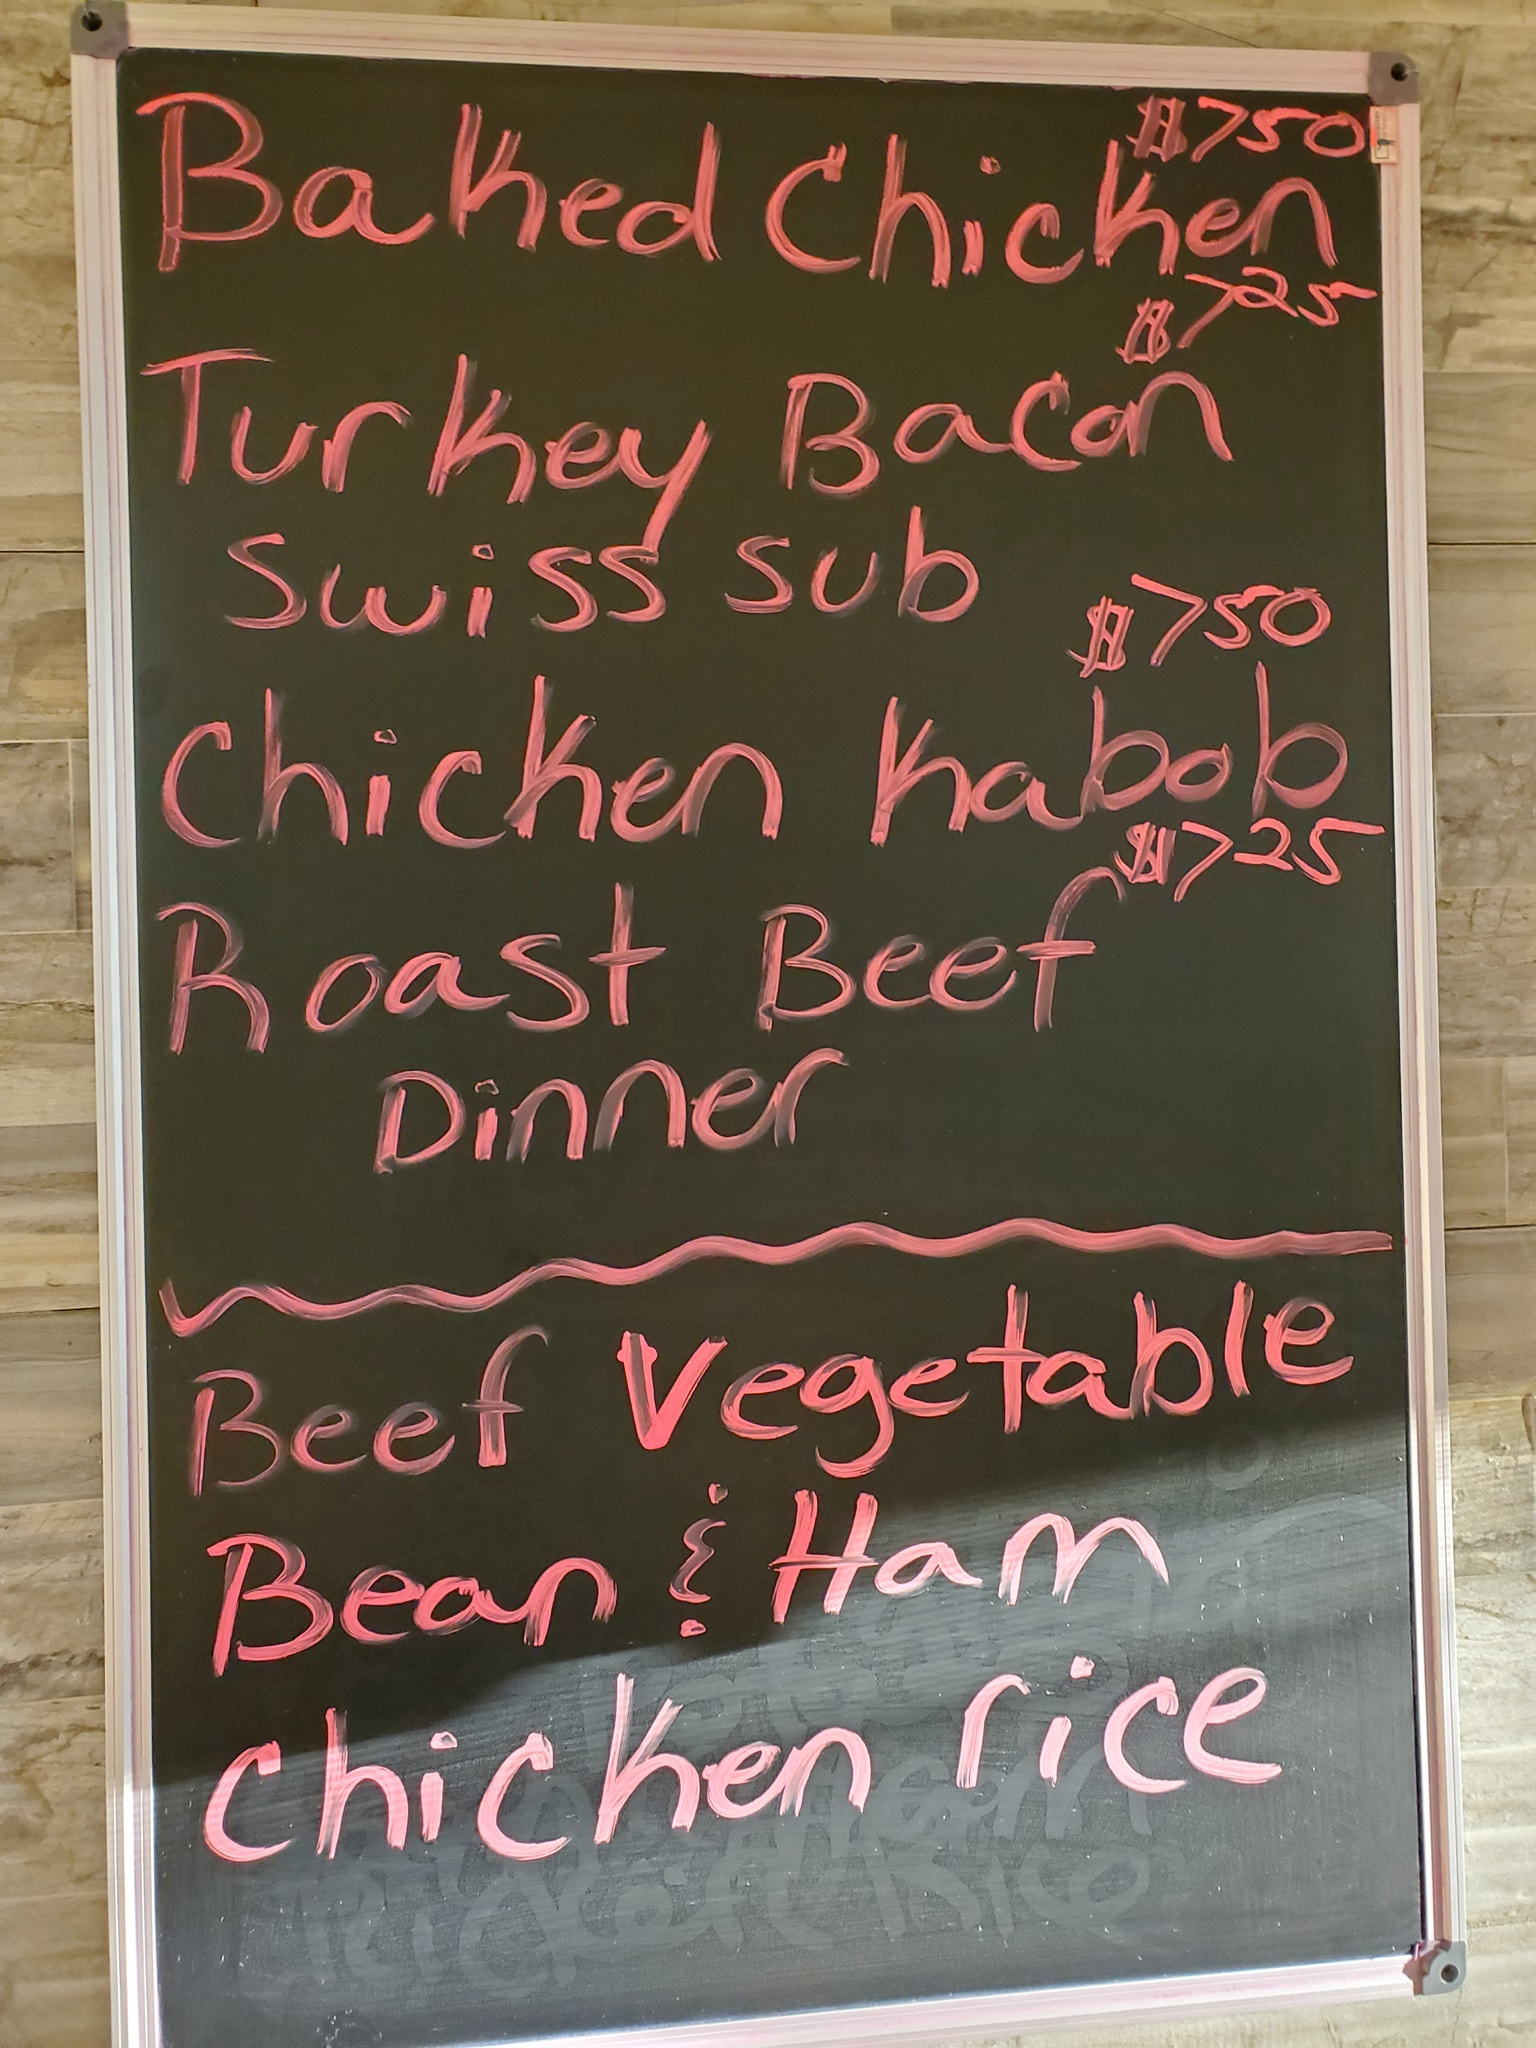 $750
Baked Chicken
$725
Turkey Bacon
Swiss sub
$750
Chicken Kabob
$725
Roast Beef
Dinner
Beef Vegetable
Bean & Ham
Chicken rice